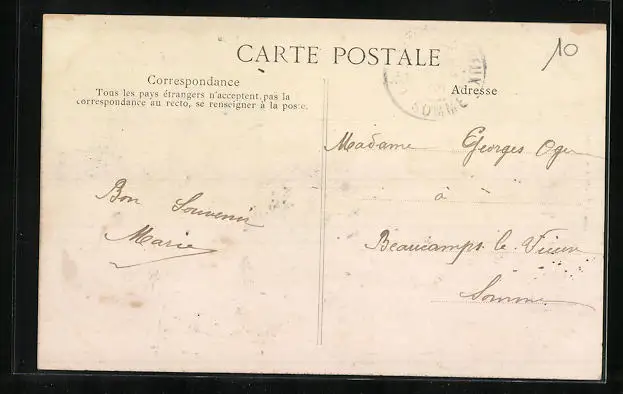 CARTE POSTALE
10
Correspondance
Tous les pays étrangers n'acceptent pas la
correspondance au recto, se renseigner à la poste.
Adresse
SOMME
Madame Georges Oger
à
Beaucamps le Vieux
Somme
Bon Souvenir
Marie